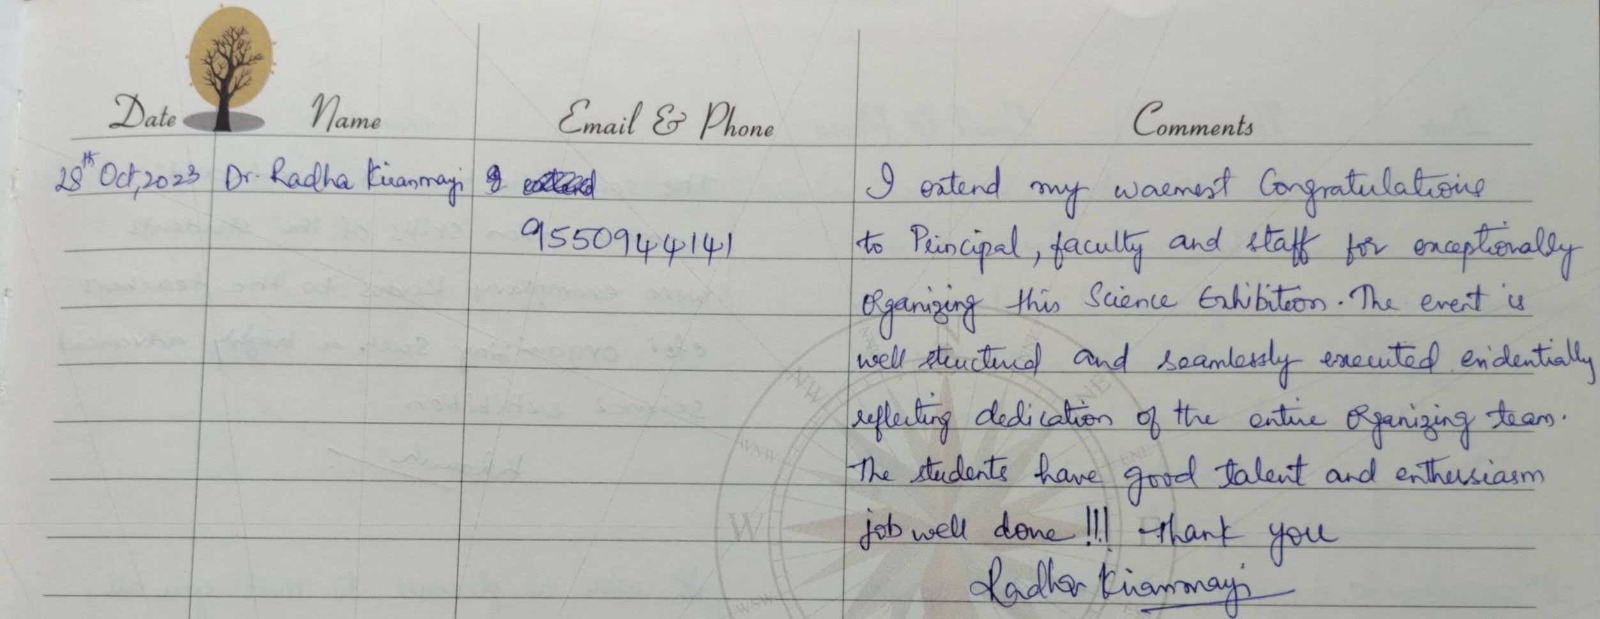 Date Name Email & Phone Comments
28th Oct, 2023 Dr. Radha Kiranmayi I
9550944141
I extend my warmest Congratulations
to Principal, faculty and staff for exceptionally
Organizing this Science Exhibition. The event is
well structured and seamlessly executed evidentially
reflecting dedication of the entire Organizing team.
The students have good talent and enthusiasm
job well done !!! Thank you
Radha Kiranmayi
NW
NNE
NE
WNW
ENE
W
E
WSW